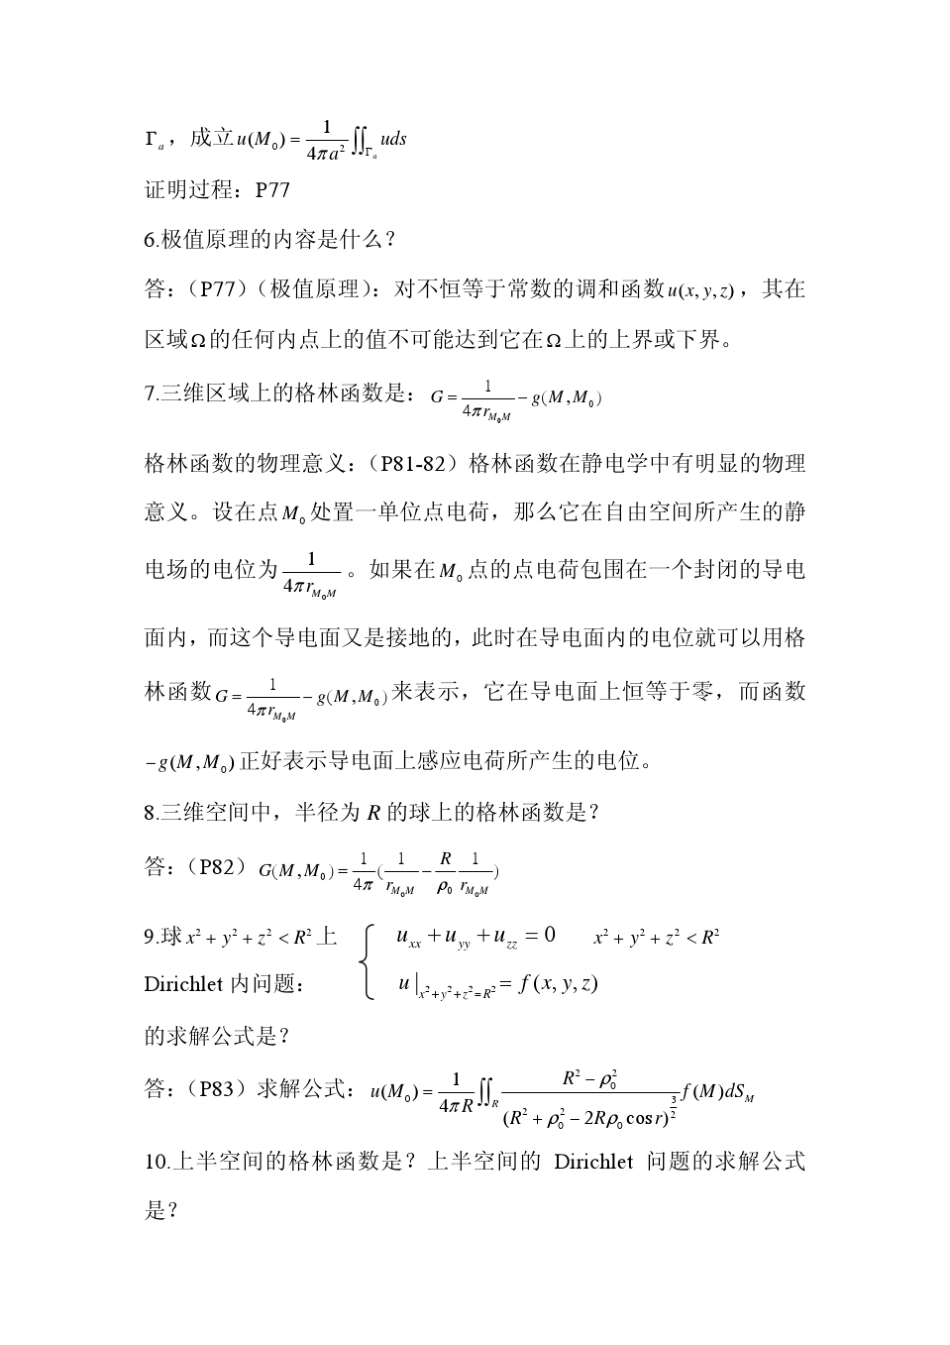 Γₐ，成立u(M₀) = 1/(4πa²) ∬_Γₐ uds
证明过程：P77
6.极值原理的内容是什么？
答：（P77）（极值原理）：对不恒等于常数的调和函数u(x, y, z)，其在
区域Ω的任何内点上的值不可能达到它在Ω上的上界或下界。
7.三维区域上的格林函数是：G = 1/(4πr_{M₀M}) − g(M, M₀)
格林函数的物理意义：（P81-82）格林函数在静电学中有明显的物理
意义。设在点M₀处置一单位点电荷，那么它在自由空间所产生的静
电场的电位为 1/(4πr_{M₀M}) 。如果在M₀点的点电荷包围在一个封闭的导电
面内，而这个导电面又是接地的，此时在导电面内的电位就可以用格
林函数G = 1/(4πr_{M₀M}) − g(M, M₀)来表示，它在导电面上恒等于零，而函数
−g(M, M₀)正好表示导电面上感应电荷所产生的电位。
8.三维空间中，半径为 R 的球上的格林函数是？
答：（P82）G(M, M₀) = 1/(4π) (1/r_{M₀M} − R/ρ₀ 1/r_{M₀M})
9.球x² + y² + z² < R²上 { u_xx + u_yy + u_zz = 0 x² + y² + z² < R²
Dirichlet 内问题： u |_{x²+y²+z²=R²} = f(x, y, z)
的求解公式是？
答：（P83）求解公式：u(M₀) = 1/(4πR) ∬_R (R² − ρ₀²)/(R² + ρ₀² − 2Rρ₀ cos r)^{3/2} f(M)dS_M
10.上半空间的格林函数是？上半空间的 Dirichlet 问题的求解公式
是？